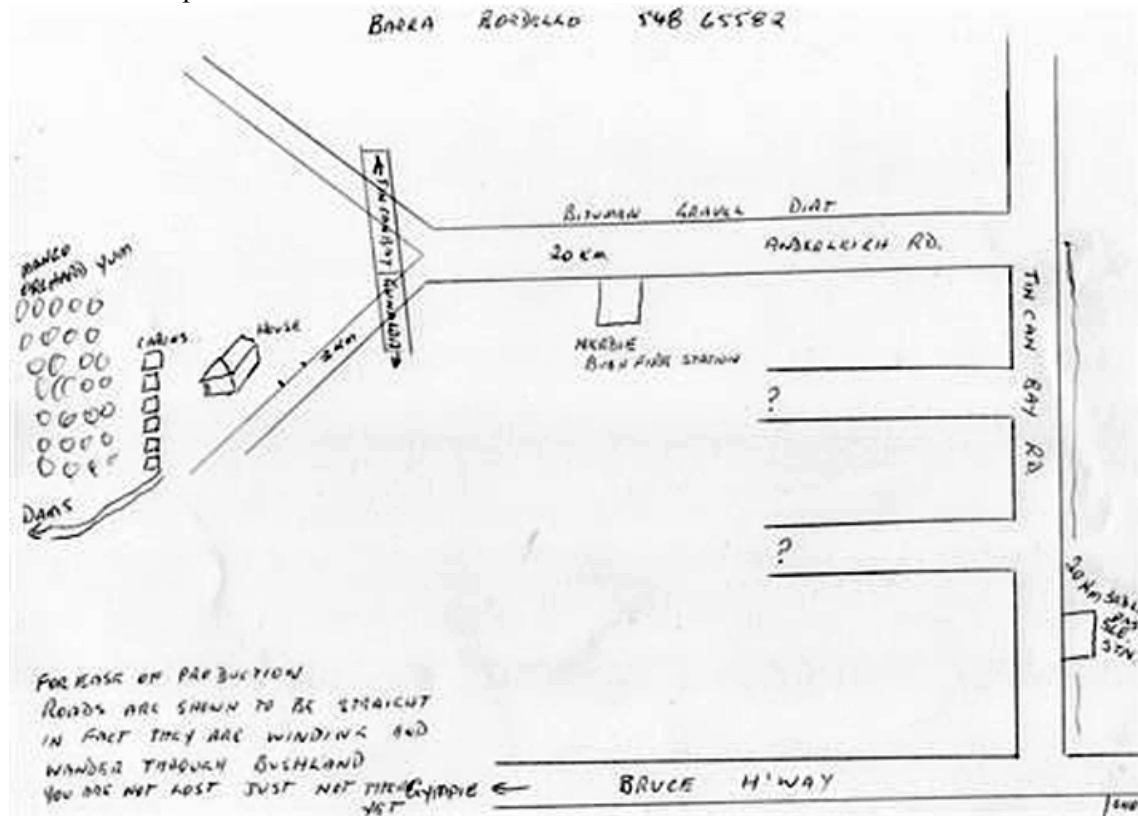 BARRA BORDELLO 548 65582
BITUMAN GRAVEL DIRT
20 KM ANDERLEIGH RD.
TIN CAN BAY
GUNALDA
MANGO
ORCHARD YUM
CABINS
HOUSE
2 KM
BUSH FIRE STATION
?
?
TIN CAN BAY RD.
DAMS
20 KM
STN.
FOR EASE OF PRODUCTION
ROADS ARE SHOWN TO BE STRAIGHT
IN FACT THEY ARE WINDING AND
WANDER THROUGH BUSHLAND
YOU ARE NOT LOST JUST NOT THERE
YET
GYMPIE
BRUCE H'WAY